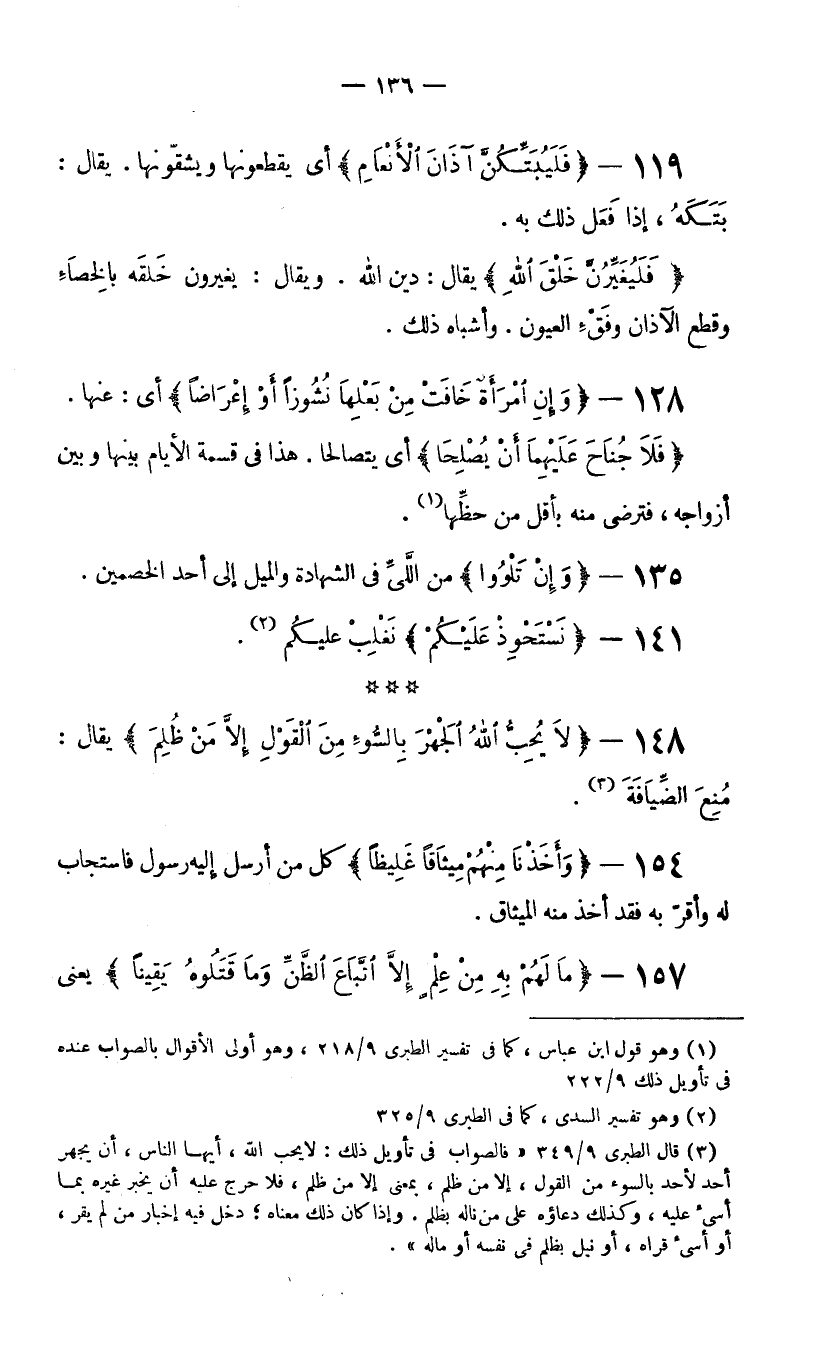 — ١٣٦ —
١١٩ — ﴿ فَلَيُبَتِّكُنَّ آذَانَ ٱلْأَنْعَامِ ﴾ أى يقطعونها ويشقّونها . يقال :
بَتَكَهُ ، إذا فَعَل ذلك به .
﴿ فَلَيُغَيِّرُنَّ خَلْقَ ٱللهِ ﴾ يقال : دين الله . ويقال : يغيرون خَلقَه بالخِصَاءِ
وقطع الآذان وفَقْءِ العيون . وأشباه ذلك .
١٢٨ — ﴿ وَإِنِ ٱمْرَأَةٌ خَافَتْ مِنْ بَعْلِهَا نُشُوزاً أَوْ إِعْرَاضاً ﴾ أى : عنها .
﴿ فَلَا جُنَاحَ عَلَيْهِمَا أَنْ يُصْلِحَا ﴾ أى يتصالحا . هذا فى قسمة الأيام بينها وبين
أزواجه ، فترضى منه بأقل من حظِّها(١) .
١٣٥ — ﴿ وَإِنْ تَلْوُوا ﴾ من اللَّىِّ فى الشهادة والميل إلى أحد الخصمين .
١٤١ — ﴿ نَسْتَحْوِذْ عَلَيْكُمْ ﴾ نَغْلِبْ عليكُم (٢) .
* * *
١٤٨ — ﴿ لاَ يُحِبُّ ٱللهُ ٱلْجَهْرَ بِالسُّوءِ مِنَ ٱلْقَوْلِ إِلاَّ مَنْ ظُلِمَ ﴾ يقال :
مُنِعَ الضِّيَافَةَ (٣) .
١٥٤ — ﴿ وَأَخَذْنَا مِنْهُمْ مِيثَاقاً غَلِيظاً ﴾ كل من أرسل إليه رسول فاستجاب
له وأقرّ به فقد أخذ منه الميثاق .
١٥٧ — ﴿ مَا لَهُمْ بِهِ مِنْ عِلْمٍ إِلاَّ ٱتِّبَاعَ ٱلظَّنِّ وَمَا قَتَلُوهُ يَقِيناً ﴾ يعنى
(١) وهو قول ابن عباس ، كما فى تفسير الطبرى ٢١٨/٩ ، وهو أولى الأقوال بالصواب عنده
فى تأويل ذلك ٢٢٢/٩
(٢) وهو تفسير السدى ، كما فى الطبرى ٣٢٥/٩
(٣) قال الطبرى ٣٤٩/٩ « فالصواب فى تأويل ذلك : لايحب الله ، أيها الناس ، أن يجهر
أحد لأحد بالسوء من القول ، إلا من ظلم ، بمعنى إلا من ظلم ، فلا حرج عليه أن يخبر غيره بما
أسىء عليه ، وكذلك دعاؤه على من ناله بظلم . وإذا كان ذلك معناه ؛ دخل فيه إخبار من لم يقر ،
أو أسىء قراه ، أو نيل بظلم فى نفسه أو ماله » .